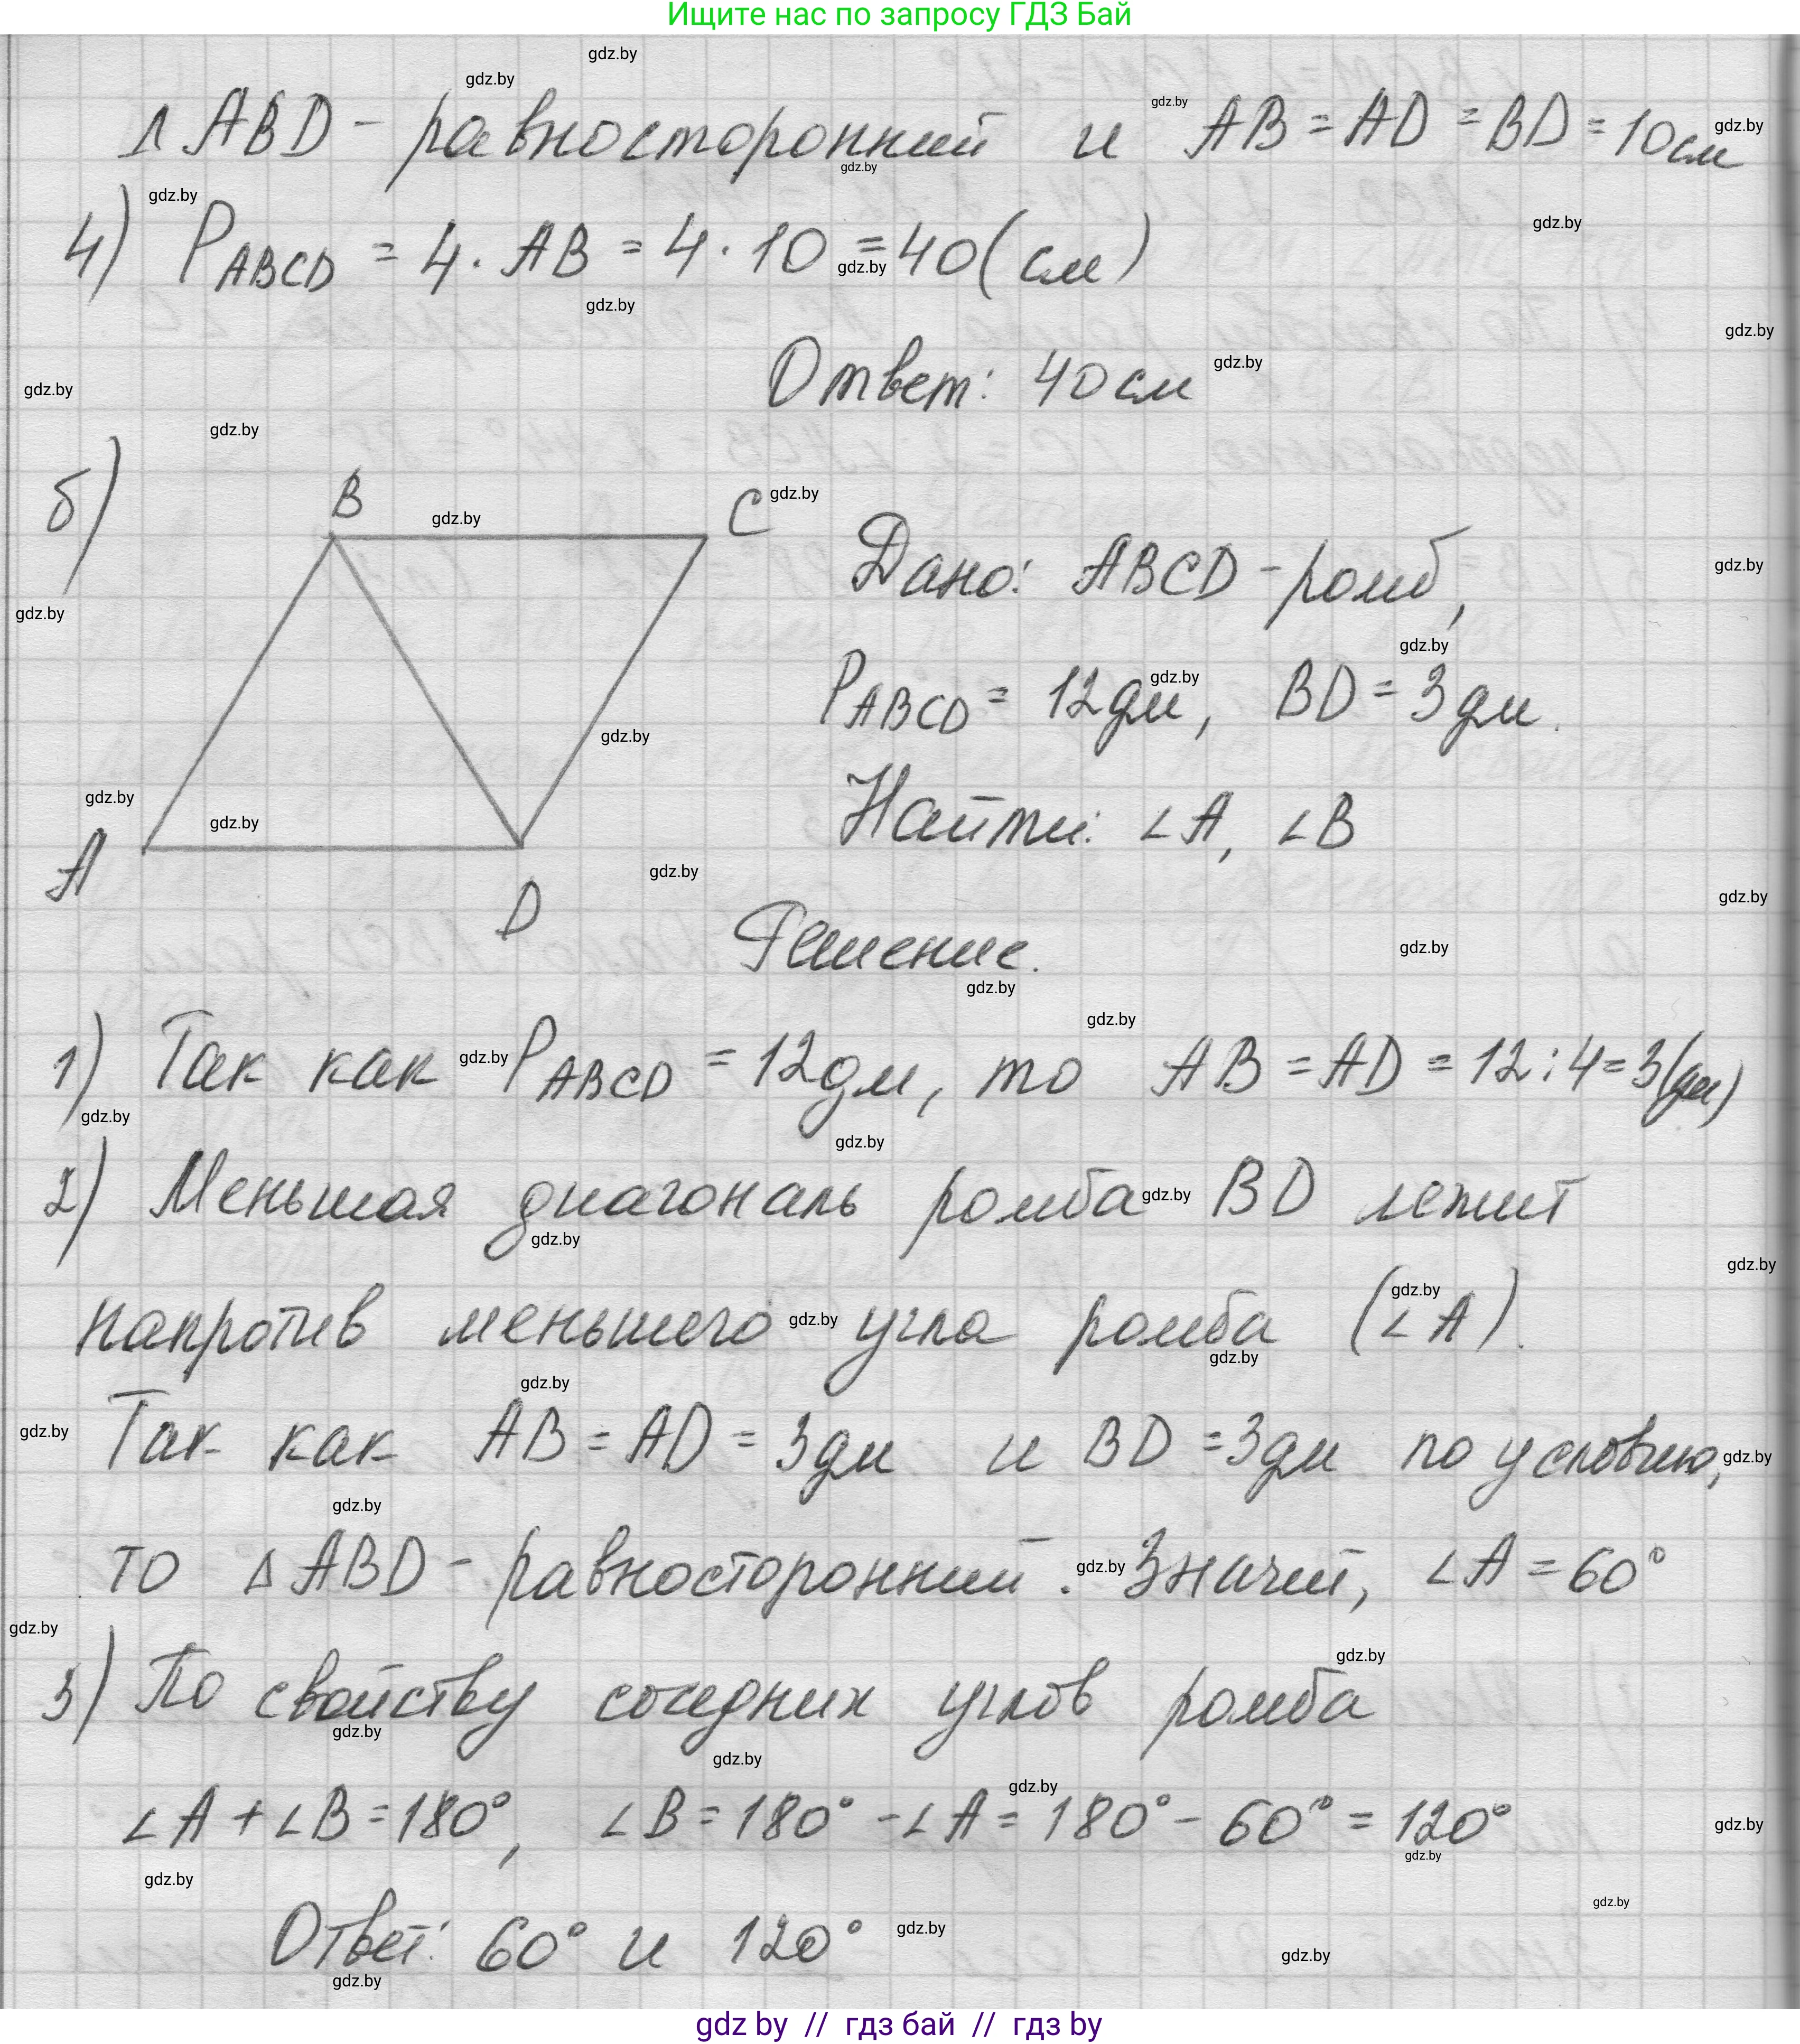 Ищите нас по запросу ГДЗ Бай
△ABD - равносторонний и AB = AD = BD = 10см
4) P_ABCD = 4 · AB = 4 · 10 = 40 (см)
Ответ: 40 см
б)
B
C
A
D
Дано: ABCD - ромб,
P_ABCD = 12 дм, BD = 3 дм.
Найти: ∠A, ∠B
Решение.
1) Так как P_ABCD = 12 дм, то AB = AD = 12 : 4 = 3 (дм)
2) Меньшая диагональ ромба BD лежит
напротив меньшего угла ромба (∠A).
Так как AB = AD = 3 дм и BD = 3 дм по условию,
то △ABD - равносторонний. Значит, ∠A = 60°
3) По свойству соседних углов ромба
∠A + ∠B = 180°, ∠B = 180° - ∠A = 180° - 60° = 120°
Ответ: 60° и 120°
gdz by // гдз бай // гдз by